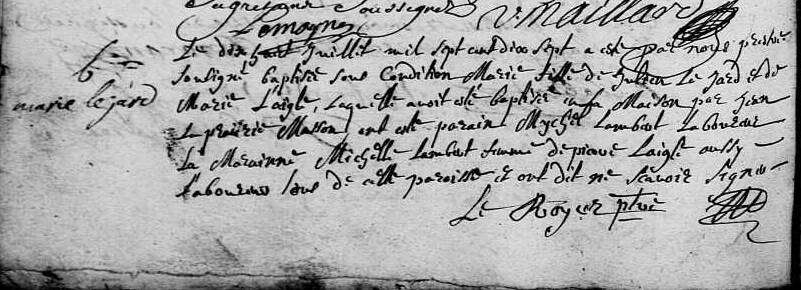 soussignez V. Maillard
Lemoyne
Le dix huit Juillet mil sept cent dix sept a esté par nous prestre
B.
marie lejard
soussigné baptisée sous Condition Marie fille de Julien Le Jard et de
Marie Laigle, Laquelle avoit esté baptisée en sa Maison par Jean
Masson, ont esté parain Mychel Lambert Laboureur
La Marainne Michelle Lambert femme de pierre Laigle aussy
Laboureur tous de cette paroisse et ont dit ne scavoir signer
Le Royer ptre